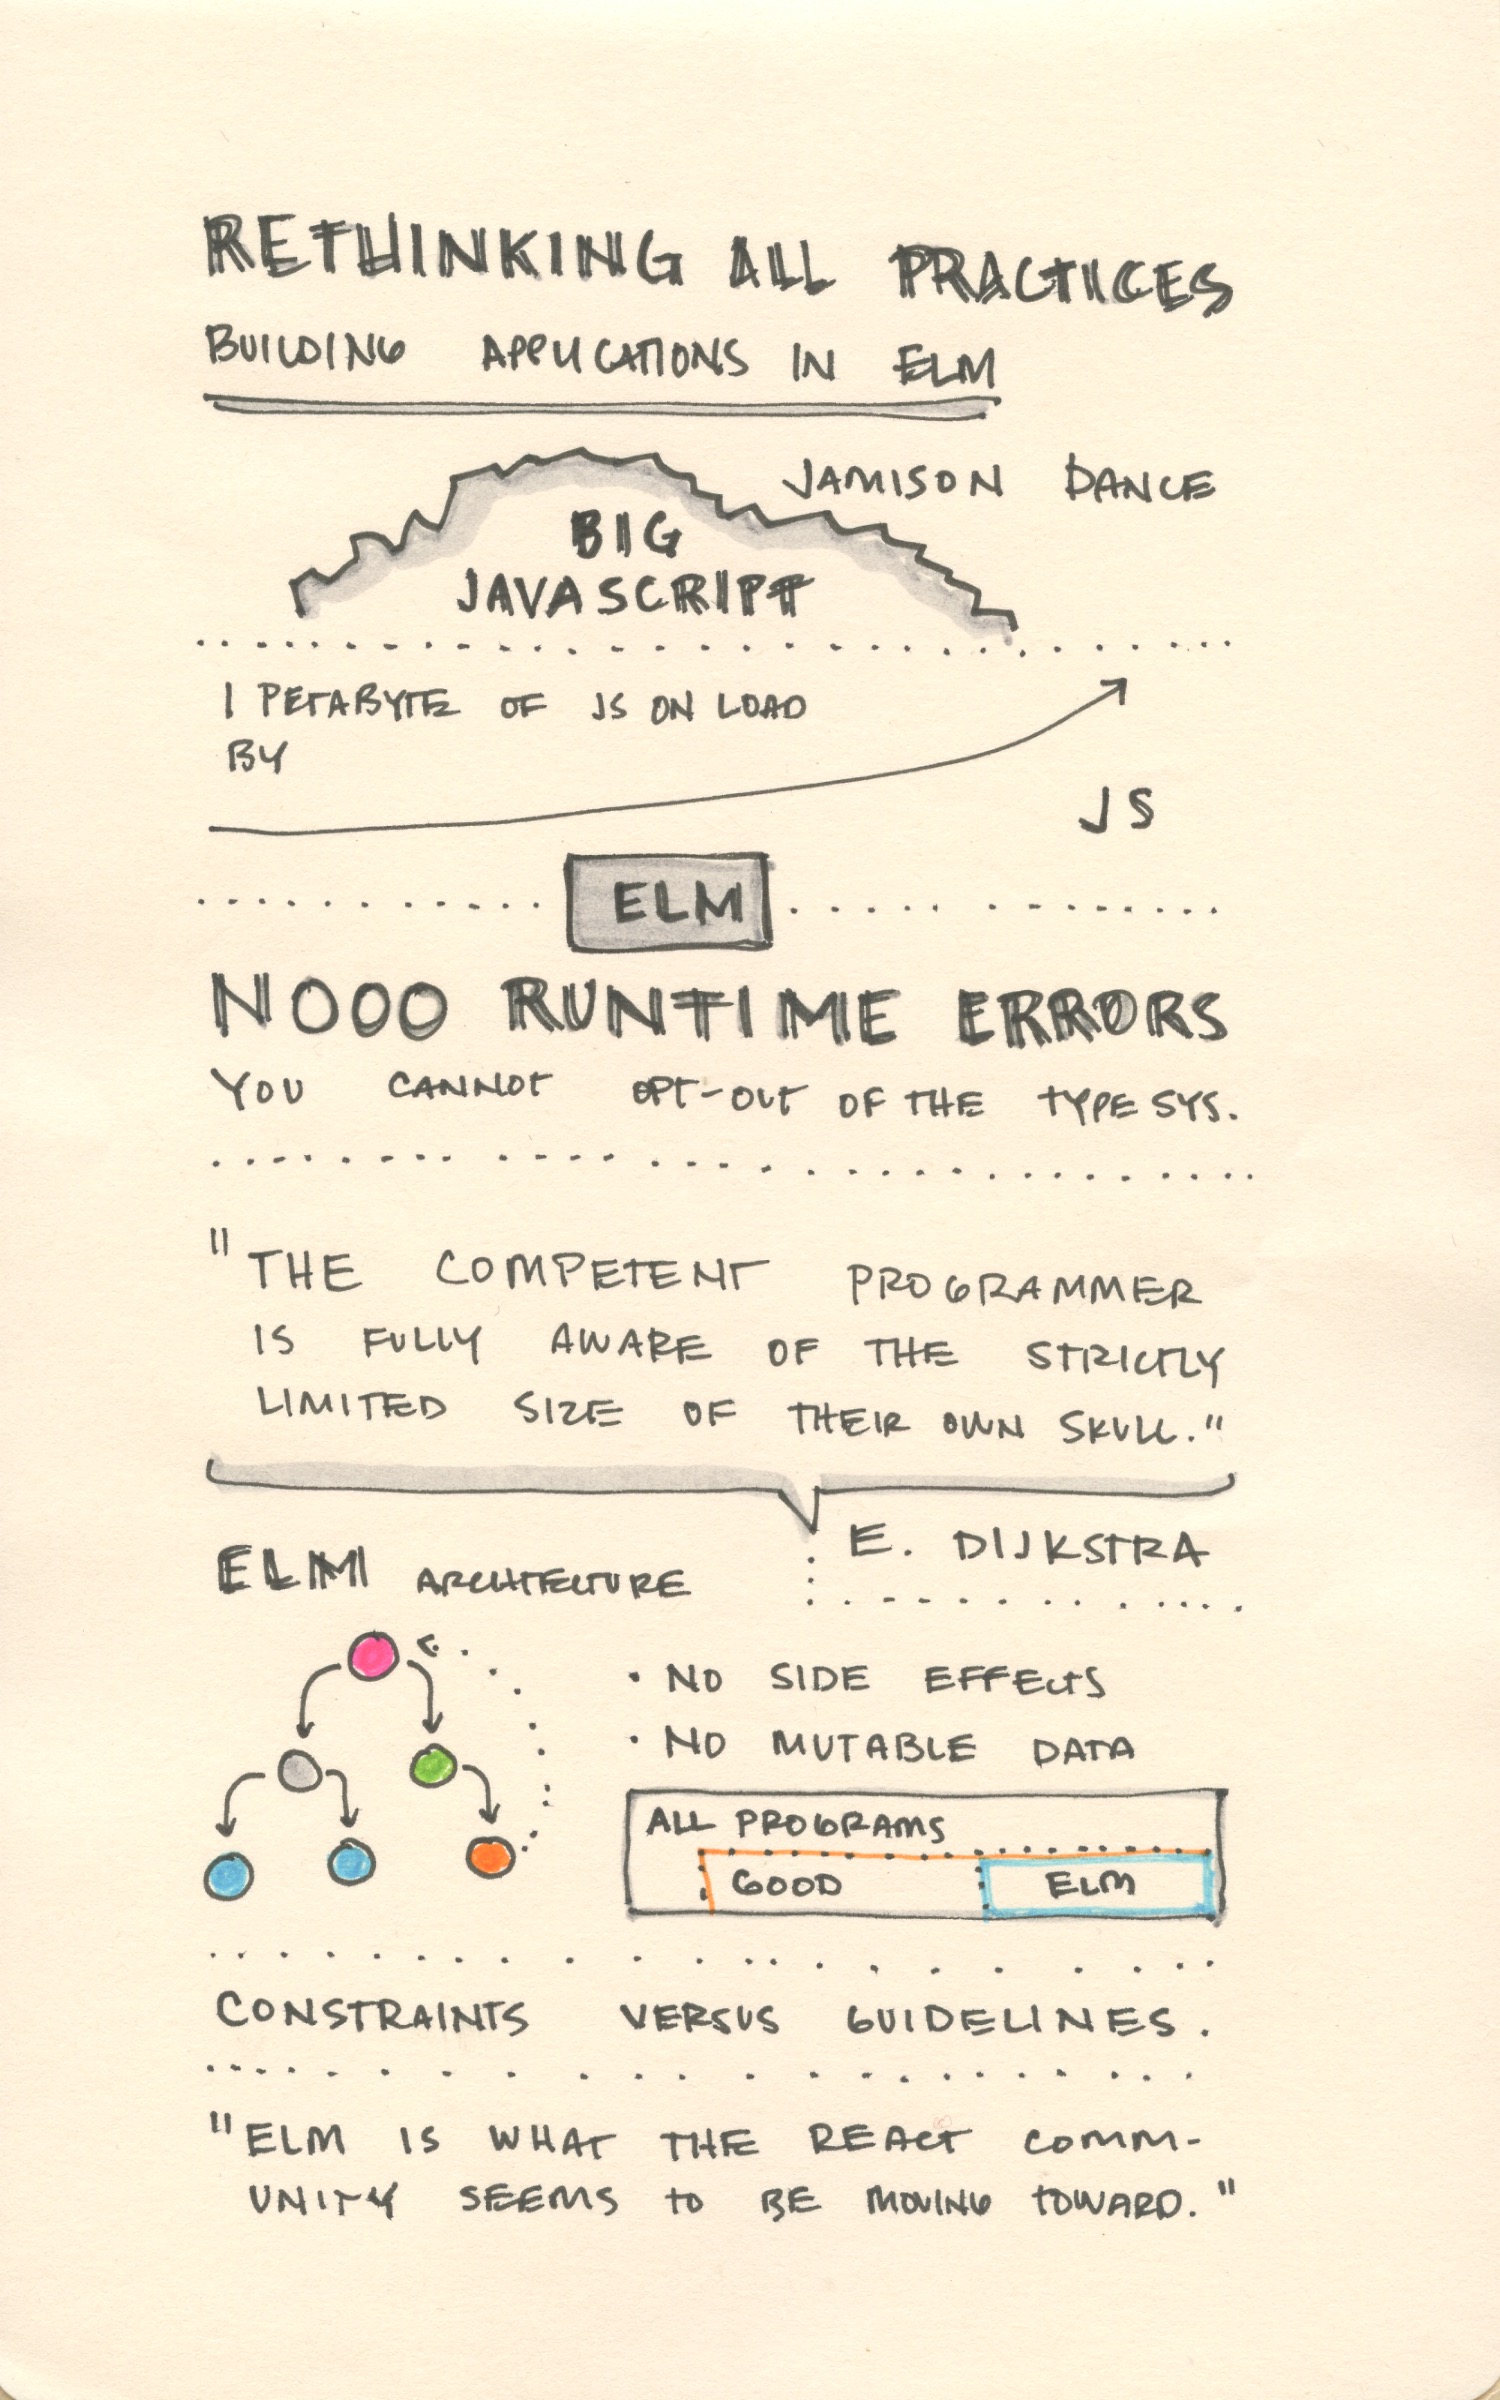 RETHINKING ALL PRACTICES
BUILDING APPLICATIONS IN ELM
JAMISON DANCE
BIG
JAVASCRIPT
1 PETABYTE OF JS ON LOAD
BY
JS
ELM
NOOO RUNTIME ERRORS
YOU CANNOT OPT-OUT OF THE TYPE SYS.
"THE COMPETENT PROGRAMMER
IS FULLY AWARE OF THE STRICTLY
LIMITED SIZE OF THEIR OWN SKULL."
E. DIJKSTRA
ELM ARCHITECTURE
• NO SIDE EFFECTS
• NO MUTABLE DATA
ALL PROGRAMS
GOOD ELM
CONSTRAINTS VERSUS GUIDELINES.
"ELM IS WHAT THE REACT COMM-
UNITY SEEMS TO BE MOVING TOWARD."